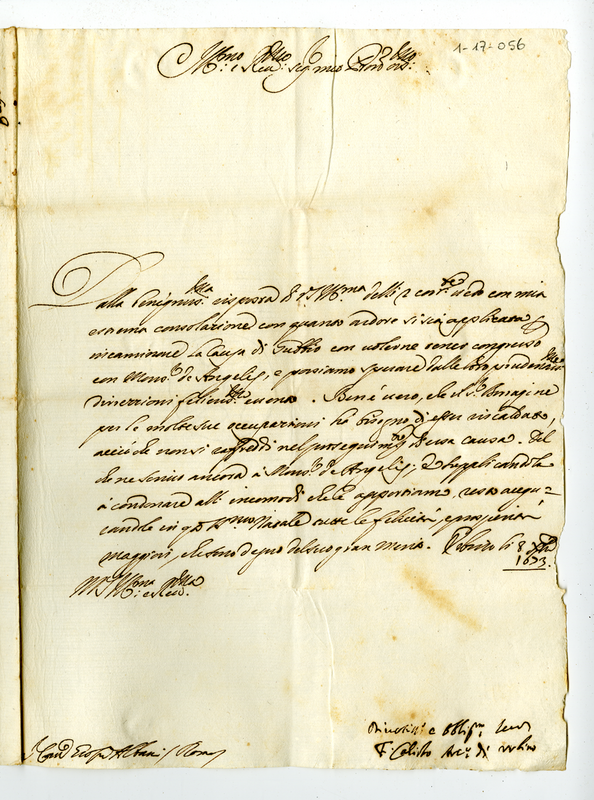 1-17-056
Ill:mo e Reu:mo Sig:r mio Pron Oss:mo
Dalla benigniss:ma risposta di V.S. Ill:ma delli 2 cor:te uedo con mia
estrema consolazione con quanto ardore si sia applicata
incaminare la Causa di Gubbio con uolerne tener congresso
con Mons:r de Angelis, e possiamo sperare dalle loro prudentiss:me
direzzioni felice euento. Ben è uero, che il S:r Bonagine
per le molte sue occupazioni ha bisogno di esser riscaldato,
acciò che non si raffreddi nel proseguim:to di essa causa. Del
che ne scriuo ancora à Mons:r de Angelis; e supplicandola
à condonare all' incomodi che le apportiamo, resto augu=
randole in q:to S:mo Natale tutte le felicità, e prosperità
maggiori, che sono degno del suo gran merito. Urbino li 8 Xbre
1673.
V.S. Ill:ma e Reu:ma
Diuotiss: e Obblig:mo Seru
F. Calisto Arc:o di Urbino